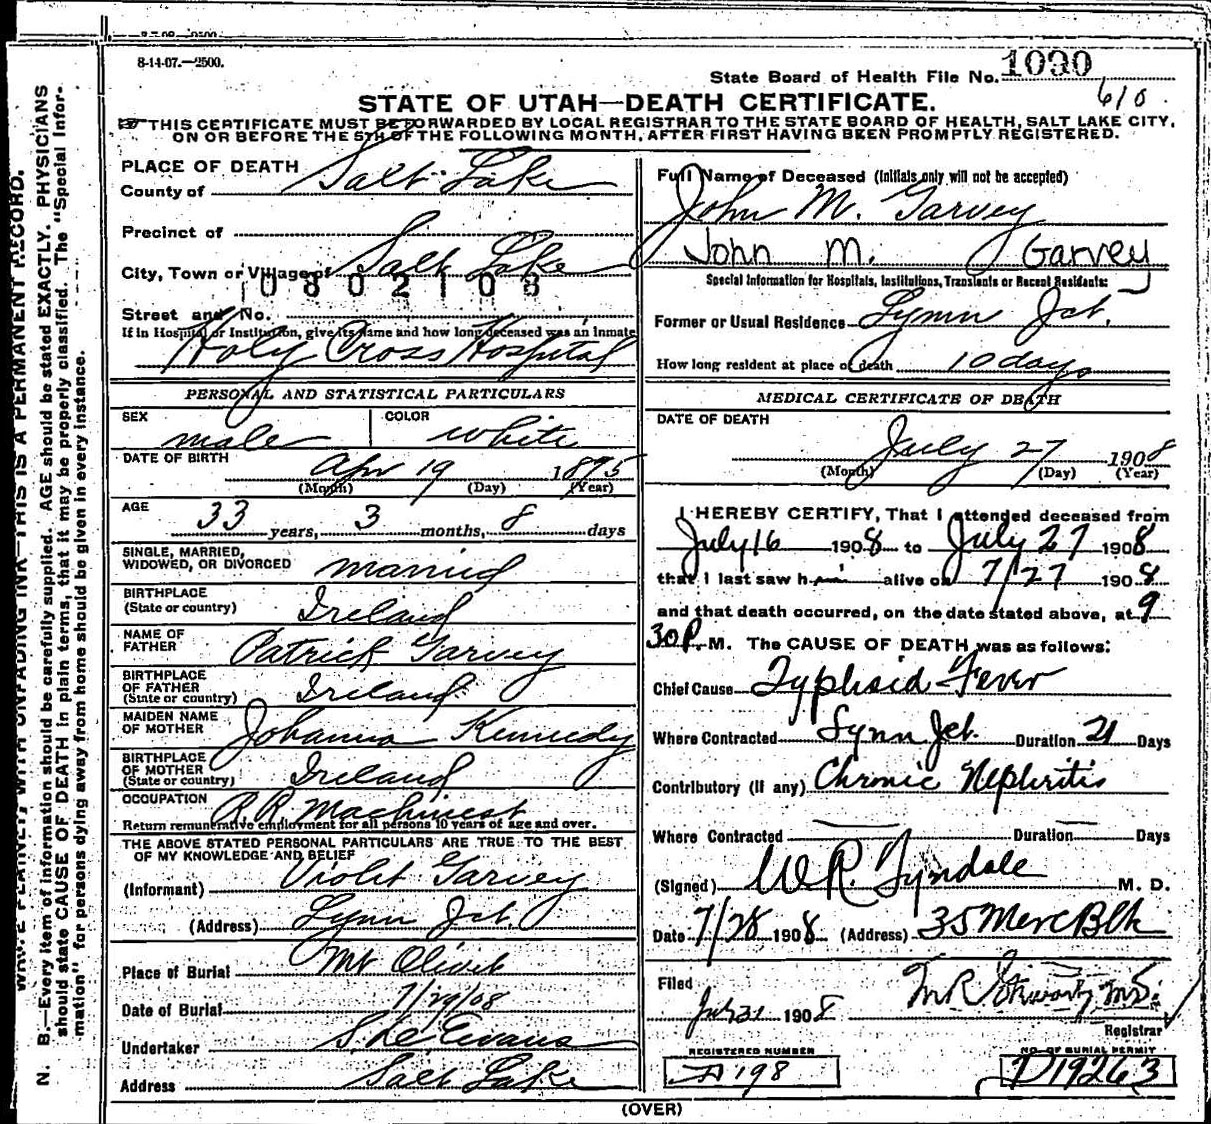 8-14-07.—2500.
State Board of Health File No. 1090
610
STATE OF UTAH—DEATH CERTIFICATE.
THIS CERTIFICATE MUST BE FORWARDED BY LOCAL REGISTRAR TO THE STATE BOARD OF HEALTH, SALT LAKE CITY,
ON OR BEFORE THE 5TH OF THE FOLLOWING MONTH, AFTER FIRST HAVING BEEN PROMPTLY REGISTERED.
PLACE OF DEATH
County of Salt Lake
Precinct of
City, Town or Village of Salt Lake
0802103
Street and No.
If in Hospital or Institution, give its name and how long deceased was an inmate
Holy Cross Hospital
PERSONAL AND STATISTICAL PARTICULARS
SEX male COLOR white
DATE OF BIRTH Apr 19 1875
(Month) (Day) (Year)
AGE 33 years, 3 months, 8 days
SINGLE, MARRIED,
WIDOWED, OR DIVORCED married
BIRTHPLACE
(State or country) Ireland
NAME OF
FATHER Patrick Garvey
BIRTHPLACE
OF FATHER
(State or country) Ireland
MAIDEN NAME
OF MOTHER Johanna Kennedy
BIRTHPLACE
OF MOTHER
(State or country) Ireland
OCCUPATION R R Machinest
Return remunerative employment for all persons 10 years of age and over.
THE ABOVE STATED PERSONAL PARTICULARS ARE TRUE TO THE BEST
OF MY KNOWLEDGE AND BELIEF
(Informant) Violet Garvey
(Address) Lynn Jct.
Place of Burial Mt Olivet
Date of Burial 7/29/08
Undertaker Evans
Address Salt Lake
Full Name of Deceased (Initials only will not be accepted)
John M. Garvey
John M. Garvey
Special Information for Hospitals, Institutions, Transients or Recent Residents:
Former or Usual Residence Lynn Jct.
How long resident at place of death 10 days
MEDICAL CERTIFICATE OF DEATH
DATE OF DEATH
July 27 1908
(Month) (Day) (Year)
I HEREBY CERTIFY, That I attended deceased from
July 16 1908 to July 27 1908
that I last saw him alive on 7/27 1908
and that death occurred, on the date stated above, at 9
30 P. M. The CAUSE OF DEATH was as follows:
Chief Cause Typhoid Fever
Where Contracted Lynn Jct. Duration 21 Days
Contributory (if any) Chronic Nephritis
Where Contracted — Duration — Days
(Signed) W R. Tyndale M. D.
Date 7/28 1908 (Address) 35 Merc Blk
Filed
July 31 1908
Registrar
REGISTERED NUMBER
198
NO. OF BURIAL PERMIT
D19263
(OVER)
N. B.—Every item of information should be carefully supplied. AGE should be stated EXACTLY. PHYSICIANS
should state CAUSE OF DEATH in plain terms, that it may be properly classified. The "Special Infor-
mation" for persons dying away from home should be given in every instance.
WRITE PLAINLY, WITH UNFADING INK—THIS IS A PERMANENT RECORD.